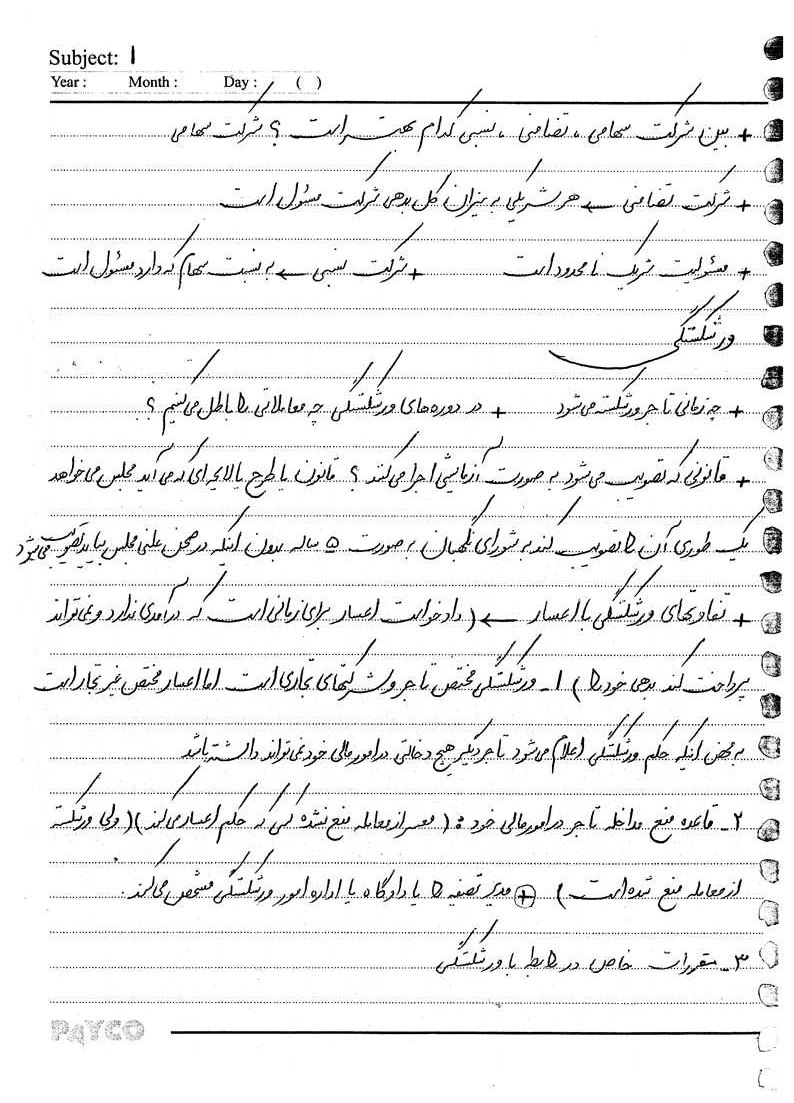 Subject: 1
Year: Month: Day: ( )
+ بین شرکت سهامی ، تضامنی ، نسبی کدام بهتر است ؟ شرکت سهامی
+ شرکت تضامنی ← هر شریکی به میزان کل بدهی شرکت مسئول است
+ مسئولیت شریک نامحدود است + شرکت نسبی ← به نسبت سهام که دارد مسئول است
ورشکستگی
+ چه زمانی تاجر ورشکسته می‌شود + در دوره‌های ورشکستگی چه معاملاتی را باطل می‌کنیم ؟
+ قانونی که تصویب می‌شود به صورت آزمایشی اجرا می‌کنند ؟ قانون یا طرح یا لایحه ای که می آید مجلس می‌خواهد
یک طوری آن را تصویب کند به شورای نگهبان به صورت ۵ ساله بدون اینکه در صحن علنی مجلس بیاید تصویب می‌شود
+ تفاوتهای ورشکستگی با اعسار ← ( دادخواست اعسار برای زمانی است که درآمدی ندارد و نمی‌تواند
پرداخت کند بدهی خود را ) ۱ ـ ورشکستگی مختص تاجر و شرکتهای تجاری است اما اعسار مختص غیر تجار است
به محض اینکه حکم ورشکستگی اعلام می‌شود تاجر دیگر هیچ دخالتی در امور مالی خود نمی‌تواند داشته باشد
۲ ـ قاعده منع مداخله تاجر در امور مالی خود : ( معسر از معامله منع نشده کسی که حکم اعسار می‌گیرد ) ( ولی ورشکسته
از معامله منع شده است ) + مدیر تصفیه را یا دادگاه یا اداره امور ورشکستگی مشخص می‌کند .
۳ ـ مقررات خاص در رابطه با ورشکستگی
PAYCO